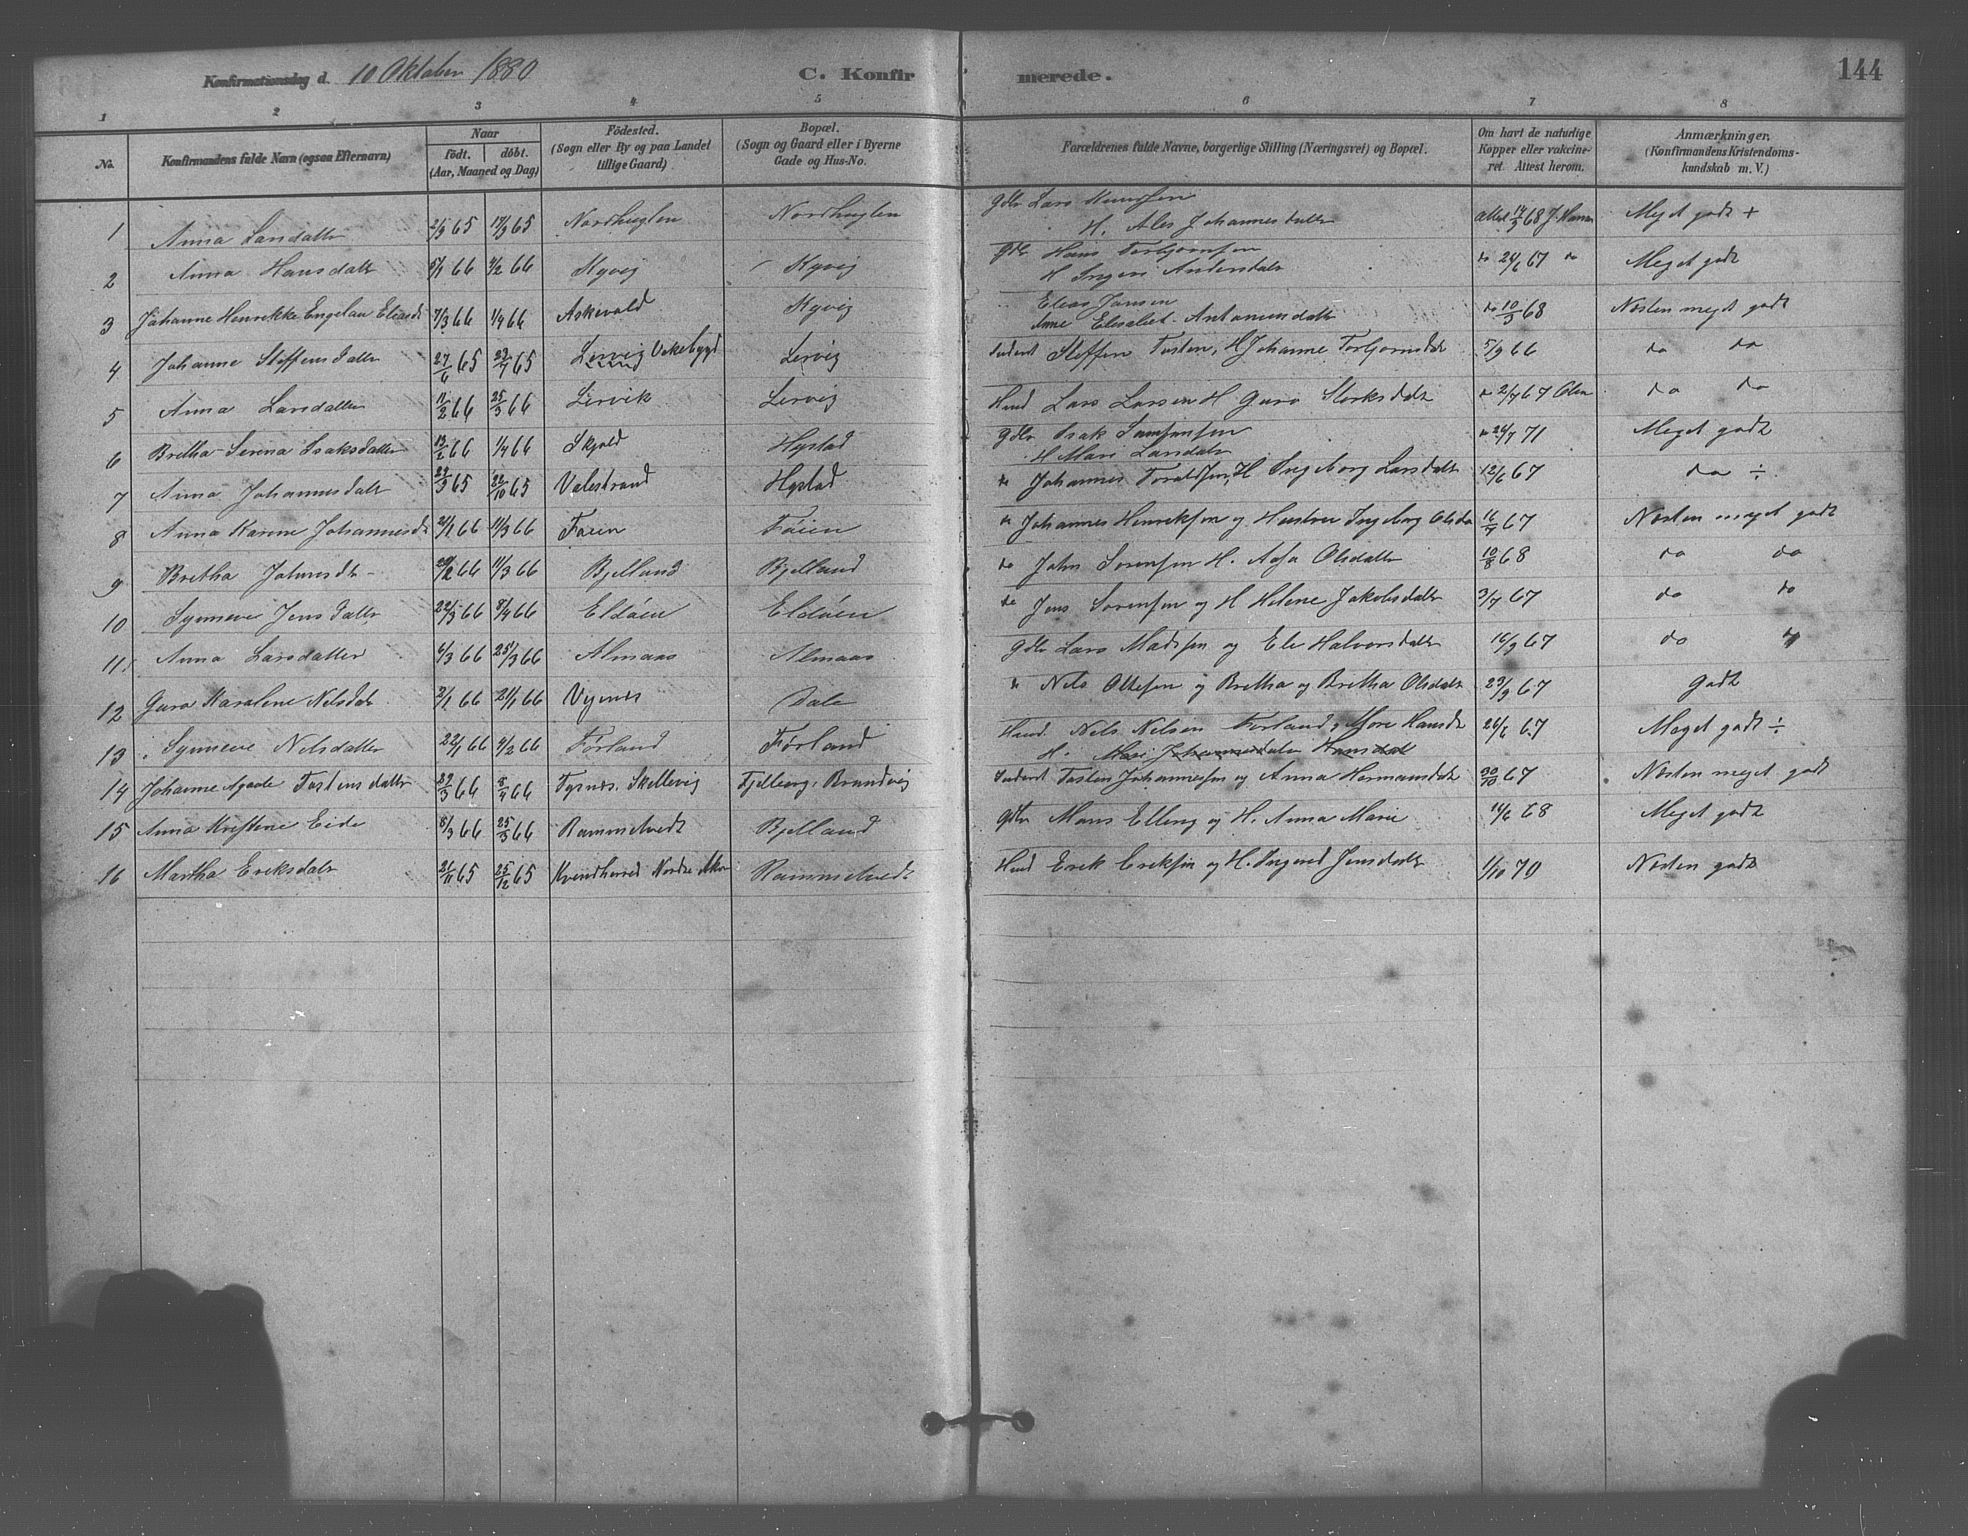 Konfirmationsdag d. 10 Oktober 1880 C. Konfirmerede. 144
1 2 3 4 5 6 7 8
No. Konfirmandens fulde Navn (ogsaa Efternavn) Naar født. døbt. (Aar, Maaned og Dag) Födested. (Sogn eller By og paa Landet tillige Gaard) Bopæl. (Sogn og Gaard eller i Byerne Gade og Hus-No. Forældrenes fulde Navne, borgerlige Stilling (Næringsvei) og Bopæl. Om havt de naturlige Kopper eller vakcineret Attest herom. Anmærkninger. (Konfirmandens Kristendomskundskab m. V.)
1 Anna Larsdatter 2/9 65 17/9 65 Nordhuglen Nordhuglen Gdbr Lars H. Ales Johannesdatter attest 14/9 68 J. Meget godt +
2 Anna Hansdatter 5/1 66 4/2 66 Hyvig Hyvig Gdbr Hans Torbjørnsen H Ingeri Andersdatr do 24/6 67 do Meget godt
3 Johanne Henrikke Engelau Eliasdt 7/3 66 1/4 66 Askvold Hyvig Elias Jansen Anne Elisabet Antoniusdatter do 10/9 68 Næsten meget godt
4 Johanne Steffensdatter 27/6 65 23/7 65 Lervig Vikebygd Lervig Inderst Steffen Tosten, H Johanne Torbjørnsdtr 5/9 66 do do
5 Anna Larsdatter 11/2 66 25/3 66 Lervik Lervig Husd Lars Larsen H Guro Storksdatr do 2/7 67 Olsen do do
6 Bretha Serina Isaksdatter 13/2 66 1/4 66 Skjold Hystad Gdbr Isak Samsonsen H Mari Larsdatr do 24/7 71 Meget godt
7 Anna Johannesdatr 23/9 65 22/10 65 Valestrand Hystad do Johannes Toraldsen, H Ingeborg Larsdatr 12/6 67 do ÷
8 Anna Karine Johannesdt 21/1 66 11/3 66 Føien Føien do Johannes Henriksen og Hustru Ingeborg Olsda 16/7 67 Næsten meget godt
9 Bretha Johnsdtr 20/2 66 11/3 66 Bjelland Bjelland do John Sørensen H. Aasa Olsdatter 10/8 68 do do
10 Synneve Jensdatter 22/3 66 8/4 66 Eldøien Eldøien do Jens Sørensen og H Helene Jakobsdatr 3/7 67 do do
11 Anna Larsdatter 6/3 66 25/3 66 Almaas Almaas Gdbr Lars Madssen og Eli Halvorsdatter 16/9 67 do do
12 Guro Karoline Nilsdtr 2/1 66 21/1 66 Vynæs Dale do Nils Ottesen og Bretha og Bretha Olsdatr 23/9 67 Godt
13 Synneve Nilsdatter 22/1 66 4/2 66 Førland Førland Husd. Nils Nilsen Førland, Hansdt H. Mari Johannesdatter Hansdatr 26/6 67 Meget godt ÷
14 Johanne Agaate Tostensdatter 27/3 66 8/4 66 Tysnes. Skellevig Fjelberg, Brandvig Inderst Tosten Johannessen og Anna Hermansdatr 30/10 67 Næsten meget godt
15 Anna Kristine Eide 8/3 66 25/3 66 Rommetvedt Bjelland Gdbr Mons Elling og H. Anna Marie 14/6 68 Meget godt
16 Martha Eriksdatr 26/11 65 25/12 65 Kvindherred Nordre Rommetvedt Husd Erik Eriksen og H. Ingered Jensdatter 1/10 70 Næsten godt